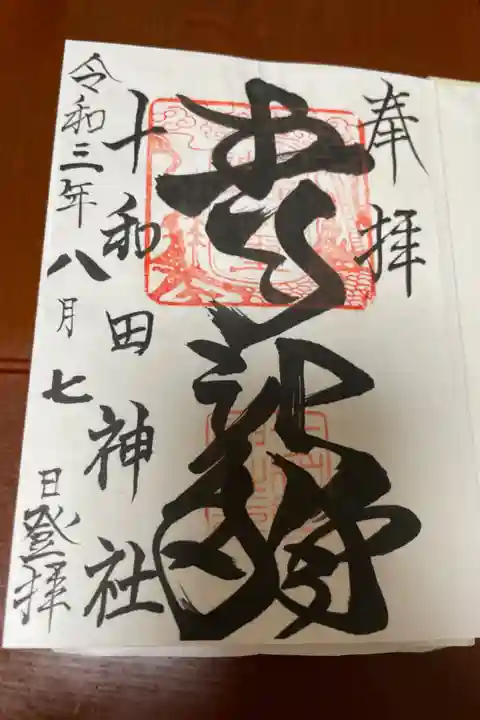 奉拝
青龍
十和田神社
令和三年八月七日登拝